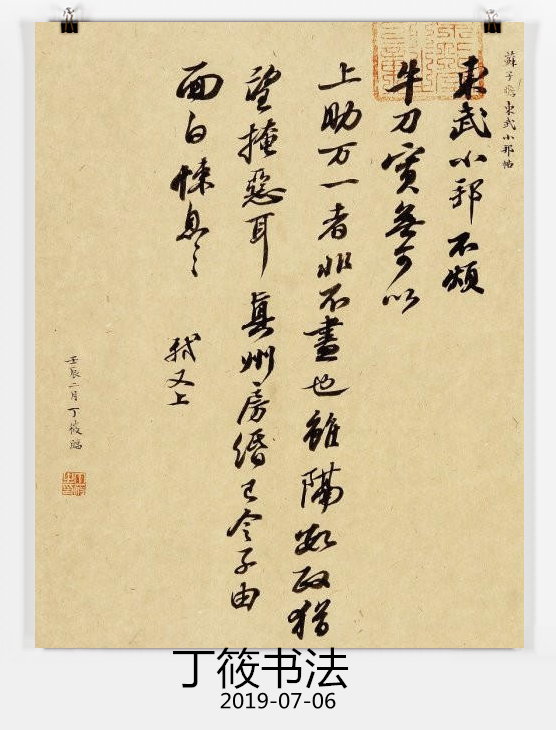 蘇子瞻東武小邦帖
東武小邦不煩
牛刀實無可以
上助万一者非不盡也雖隔數政猶
望掩惡耳真州房緡已令子由
面白悚息〻
軾又上
壬辰二月丁筱臨
丁筱书法
2019-07-06